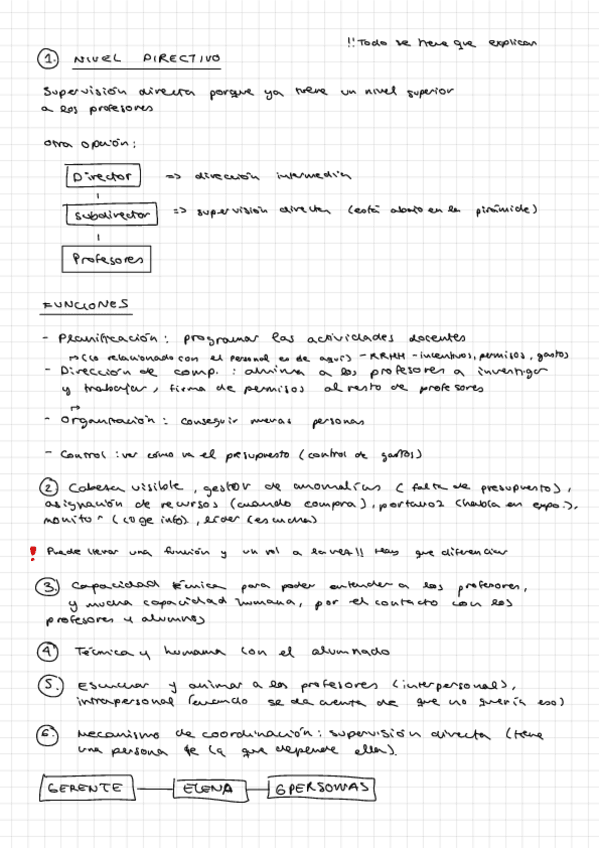 !! Todo se tiene que explicar
1. NIVEL DIRECTIVO
Supervisión directa porque ya tiene un nivel superior
a los profesores
otra opción:
Director => dirección intermedia
Subdirector => supervisión directa (está abajo en la pirámide)
Profesores
FUNCIONES
- Planificación: programar las actividades docentes
→ (lo relacionado con el personal es de aquí) - RRHH - incentivos, permisos, gastos
- Dirección de comp.: anima a los profesores a investigar
y trabajar, firma de permisos al resto de profesores
- Organización: conseguir nuevas personas
- Control: ver cómo va el presupuesto (control de gastos)
2 Cabeza visible, gestor de anomalías (falta de presupuesto),
asignación de recursos (cuando compra), portavoz (habla en expo.),
monitor (coge info), líder (escucha)
! Puede llevar una función y un rol a la vez!! Hay que diferenciar
3. Capacidad técnica para poder entender a los profesores,
y mucha capacidad humana, por el contacto con los
profesores y alumnos
4 Técnica y humana con el alumnado
5. Escuchar y animar a los profesores (interpersonal),
intrapersonal (cuando se da cuenta de que no quería eso)
6. Mecanismo de coordinación: supervisión directa (tiene
una persona de la que depende ella).
GERENTE ELENA 6 PERSONAS